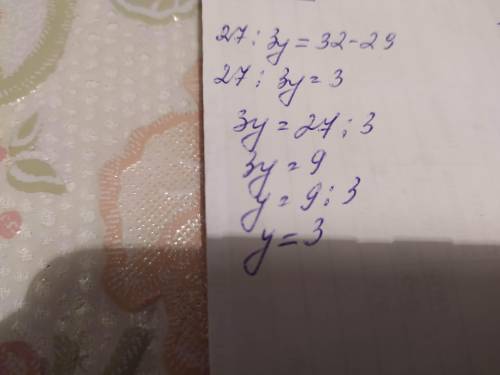 27 : 3y = 32 - 29
27 : 3y = 3
3y = 27 : 3
3y = 9
y = 9 : 3
y = 3